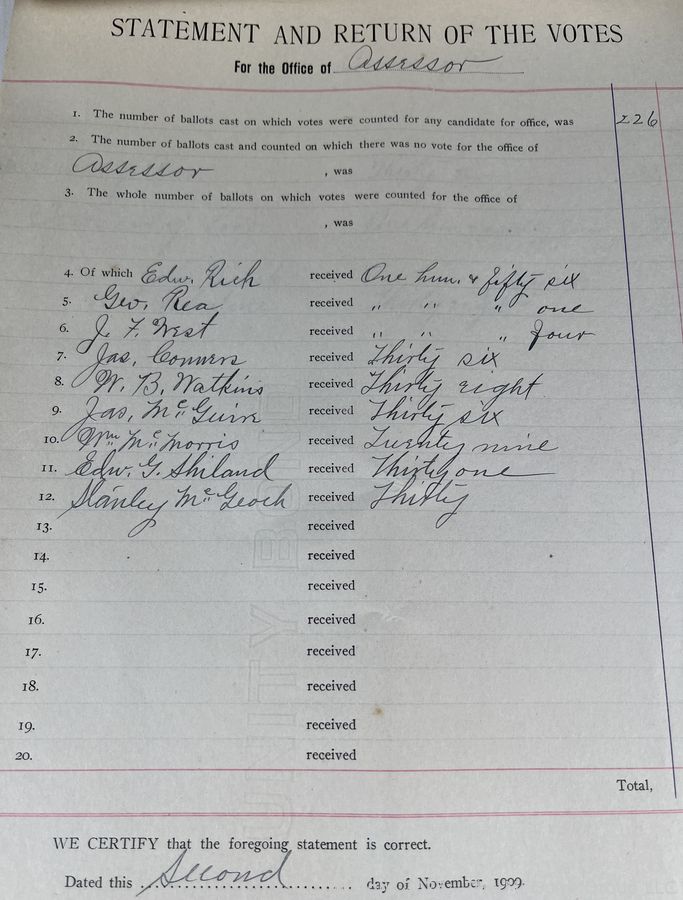 STATEMENT AND RETURN OF THE VOTES
For the Office of Assessor
1. The number of ballots cast on which votes were counted for any candidate for office, was 226
2. The number of ballots cast and counted on which there was no vote for the office of
Assessor , was
3. The whole number of ballots on which votes were counted for the office of
, was
4. Of which Edw. Rich received One hun. & fifty six
5. Geo. Rea received " " " one
6. J. F. West received " " " four
7. Jas. Conners received Thirty six
8. W. B. Watkins received Thirty eight
9. Jas. McGuire received Thirty six
10. Wm McMorris received Twenty nine
11. Edw. G. Shiland received Thirty one
12. Stanley McGeoch received Thirty
13. received
14. received
15. received
16. received
17. received
18. received
19. received
20. received
Total,
WE CERTIFY that the foregoing statement is correct.
Dated this Second day of November, 1909.